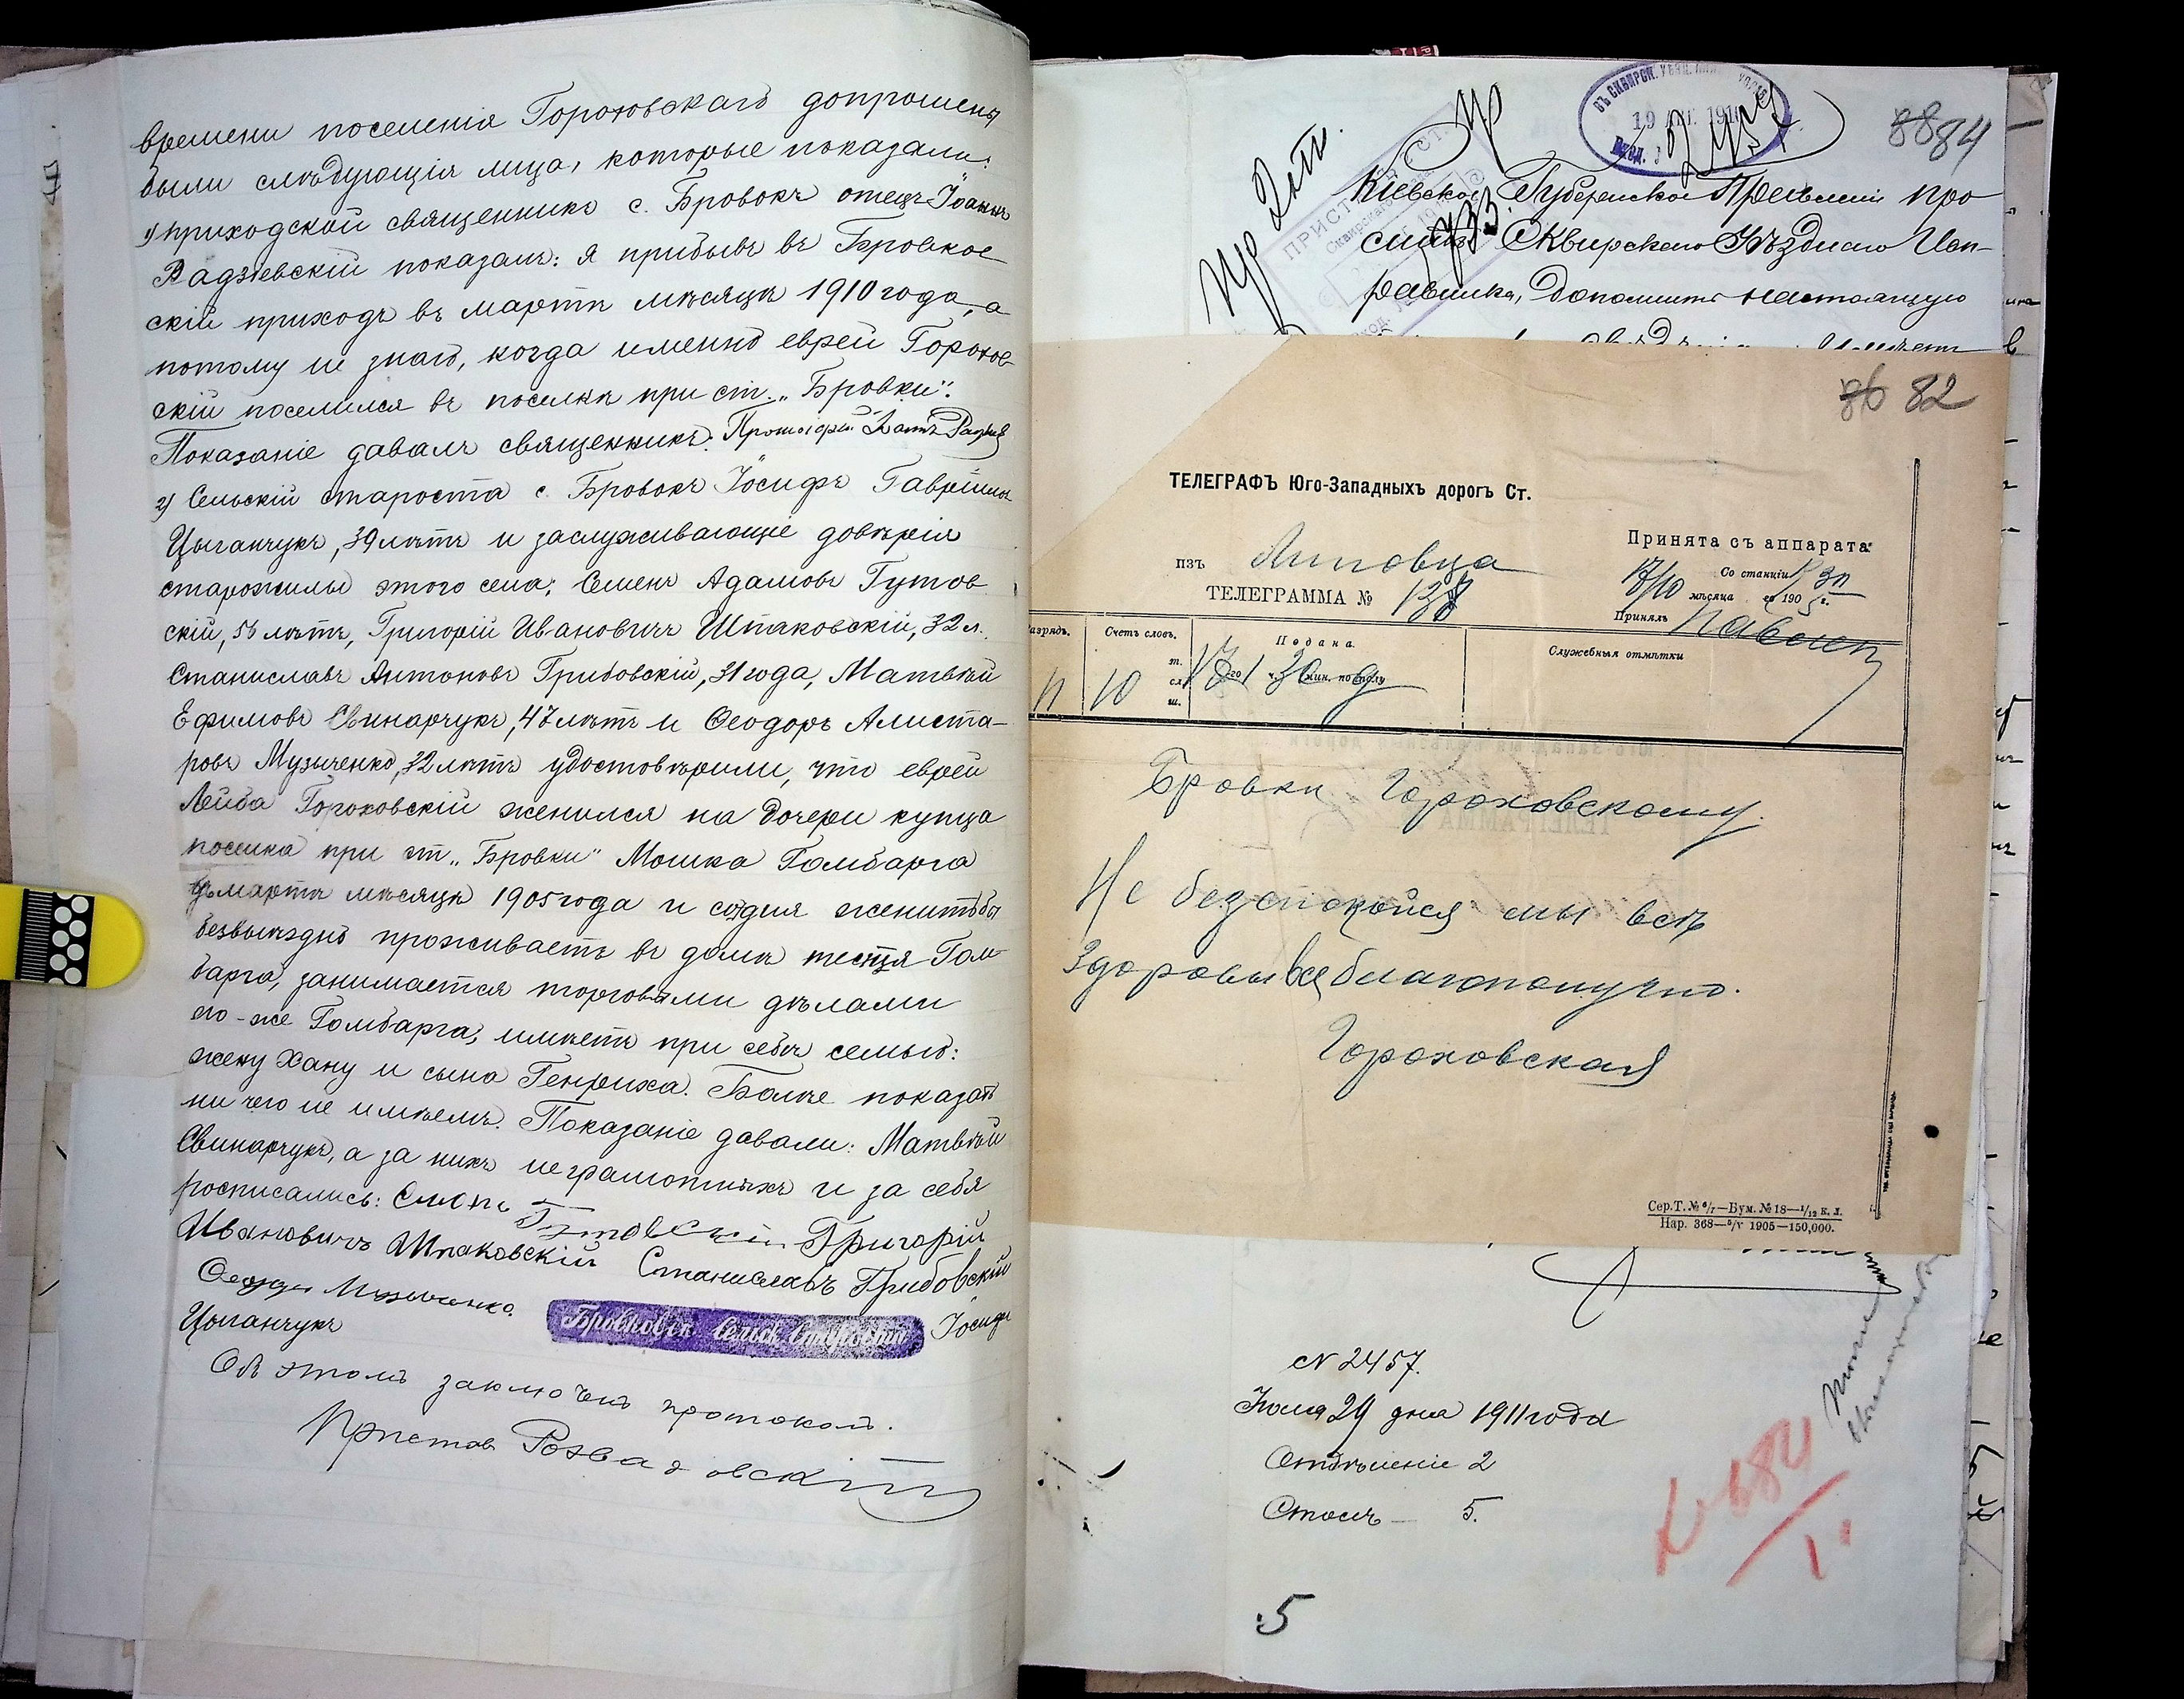 времени поселенія Гороховскаго допрошены
были слѣдующія лица, которые показали:
1) приходской священникъ с. Бровокъ отецъ Іоаннъ
Радзіевскій показалъ: я прибылъ въ Бровков-
скій приходъ въ мартѣ мѣсяцѣ 1910 года, а
потому не знаю, когда именно еврей Горохов-
скій поселился въ поселкѣ при ст. „Бровки“.
Показаніе давалъ священникъ:
2) Сельскій староста с. Бровокъ Іосифъ Гаврііловъ
Цыганчукъ, 39 лѣтъ и заслуживающіе довѣрія
старожилы этого села: Семенъ Адамовъ Гутов
скій, 55 лѣтъ, Григорій Ивановичъ Шпаковскій, 32 л.
Станиславъ Антоновъ Грибовскій, 31 года, Матвѣй
Ефимовъ Свинарчукъ, 47 лѣтъ и Ѳеодоръ Алиста-
ровъ Музыченко, 32 лѣтъ удостовѣрили, что еврей
Лейба Гороховскій женился на дочери купца
поселка при ст. „Бровки“ Мошка Гомбарга
въ мартѣ мѣсяцѣ 1905 года и со дня женитьбы
безвыѣздно проживаетъ въ домѣ тестя Гом-
барга, занимается торговыми дѣлами
его-же Гомбарга, имѣетъ при себѣ семью:
жену Хану и сына Генриха. Болѣе показать
ни чего не имѣемъ. Показаніе давали: Матвѣй
Свинарчукъ, а за нихъ неграмотныхъ и за себя
росписались: Семенъ Гутовскій Григорій
Ивановичъ Шпаковскій Станиславъ Грибовскій
Ѳеодоръ Музыченко.
Бровковск. Сельск. Староста Іосифъ
Цыганчукъ
Объ этомъ заключенъ протоколъ.
Приставъ
8884
Кіевское Губернское Правленіе про
ситъ Сквирскаго Уѣзднаго Исп-
равника, дополнить настоящую
86 82
ТЕЛЕГРАФЪ Юго-Западныхъ дорогъ Ст.
изъ Липовца
ТЕЛЕГРАММА № 138
Принята съ аппарата
Со станціи
17/10 мѣсяца 1905 г.
Принялъ
Разрядъ.
Счетъ словъ.
10
т.
сл.
ш.
Подана.
го ч. мин. по полу
Служебныя отмѣтки
Бровки Гороховскому.
Не безпокойся мы всѣ
здоровы все благополучно.
Гороховская
Сер. Т. № 6/7—Бум. № 18—1/12 к. л.
Нар. 368—5/V 1905—150,000.
№ 2457.
Іюля 29 дня 1911 года
Отдѣленіе 2
Столъ — 5.
5